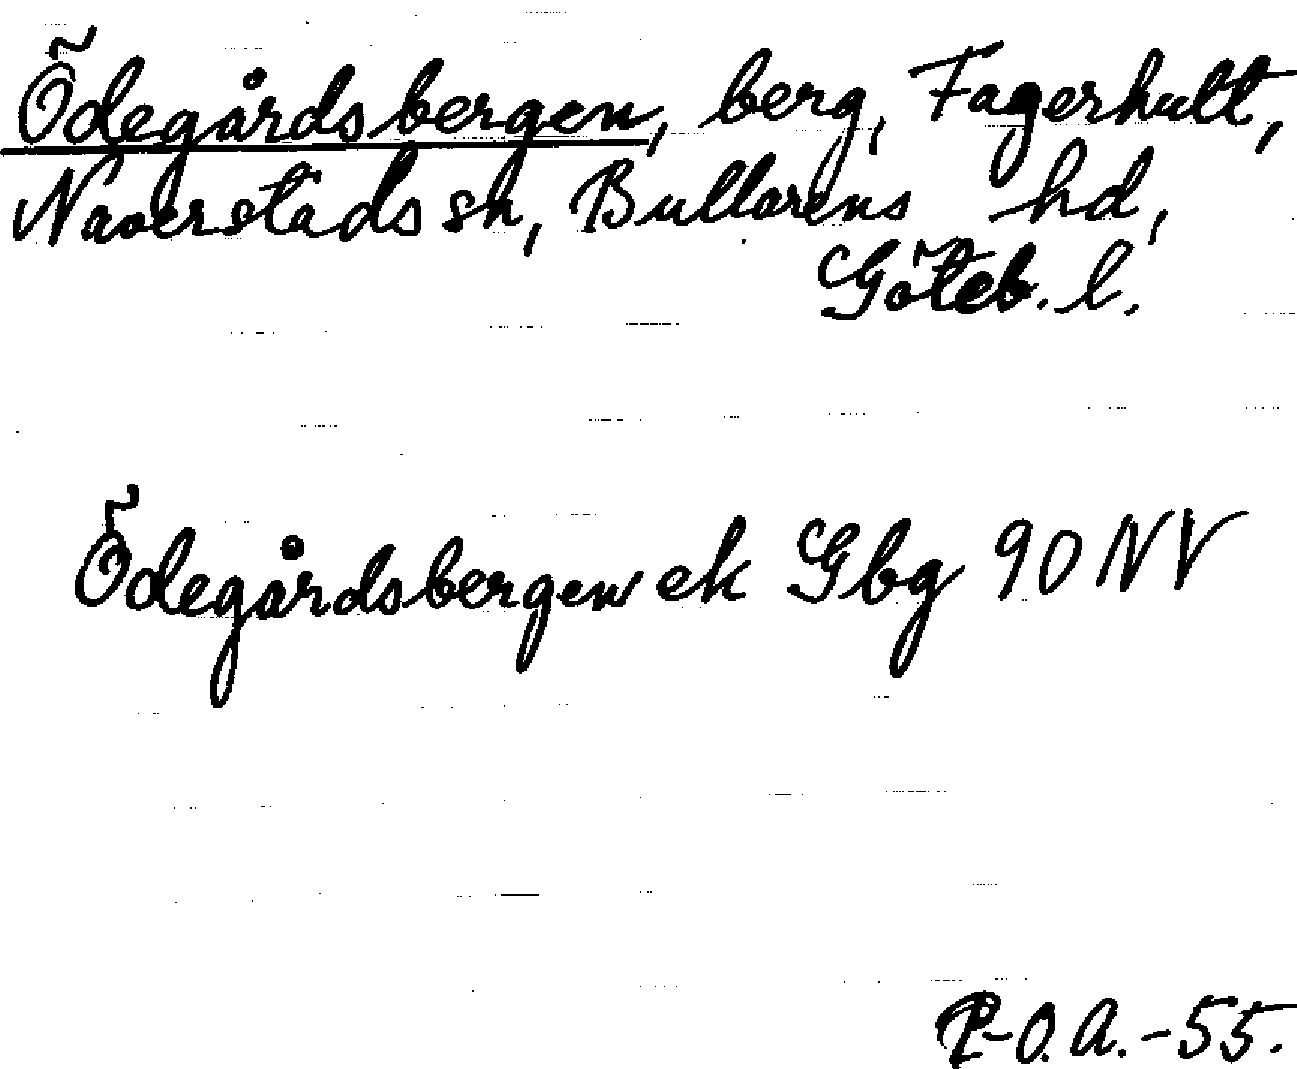 Ödegårdsbergen, berg, Fagerhult,
Naverstads sn, Bullarens hd,
Göteb. l.
Ödegårdsbergen ek Gbg 90 NV
P-O.A.-55.